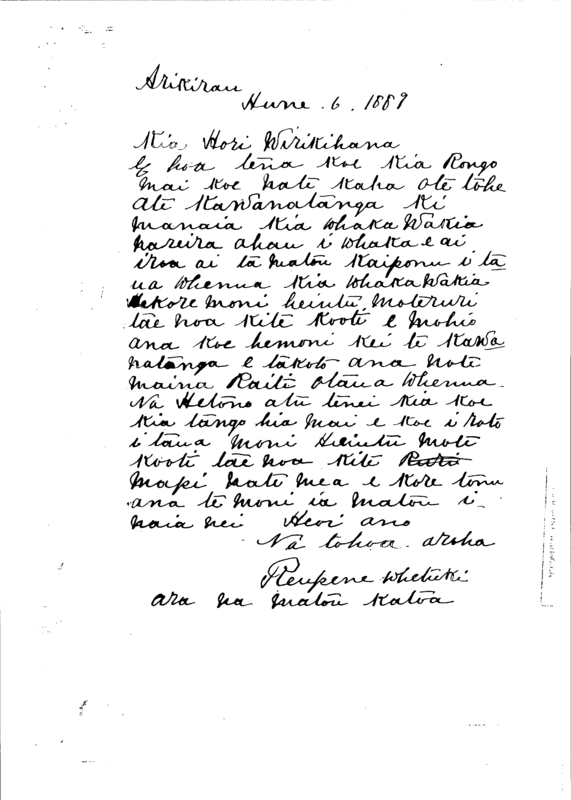 Arikirau
Hune . 6 . 1889
Kia, Hori Wirikihana
E hoa tena koe kia Rongo
mai koe nate kaha ote tohe
ate Kawanatanga ki
manaia kia whaka Wakia
nareira ahau i whaka e ai
iroa ai ta matou kaiponu i ta
ua whenua kia whaka Wakia
kore moni heiutu moteruri
tae noa kite kooti e mohio
ana koe hemoni kei te Kawa
natanga e takoto ana note
maina Raiti otaua whenua.
Na Hetono atu tenei kia koe
kia tango hia mai e koe i roto
i taua moni Heiutu mote
kooti tae noa kite
mapi nate mea e kore tonu
ana te moni ia matou i
naia nei Heoi ano
Na tohoa aroha
Reupene Whetuki
ara na matou katoa